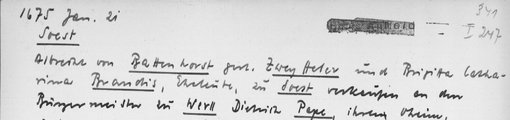 1675 Jan. 21
341
I 247
Soest
Albrecht von Battenhorst gen. Zwey und Brigitta Catha-
rina Brandis, Eheleute, zu Soest verkaufen an den
Bürgermeister zu Werl Dietrich Pape, ihrem Oheim,